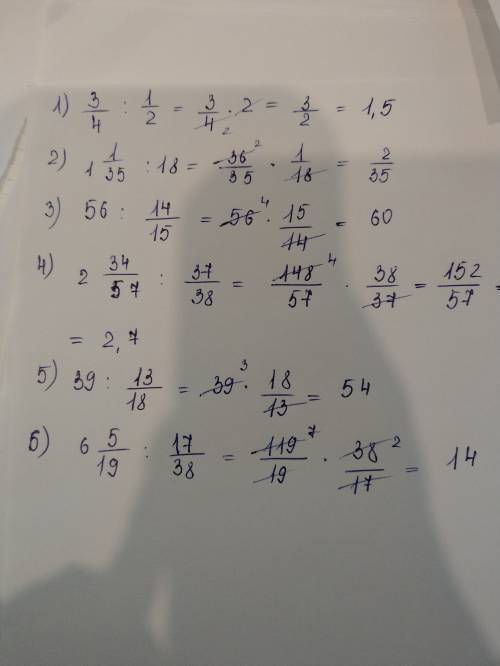 1) 3/4 : 1/2 = 3/4₂ · 2 = 3/2 = 1,5
2) 1 1/35 : 18 = 36²/35 · 1/18 = 2/35
3) 56 : 14/15 = 56⁴ · 15/14 = 60
4) 2 34/57 : 37/38 = 148⁴/57 · 38/37 = 152/57 =
= 2,7
5) 39 : 13/18 = 39³ · 18/13 = 54
6) 6 5/19 : 17/38 = 119⁷/19 · 38²/17 = 14